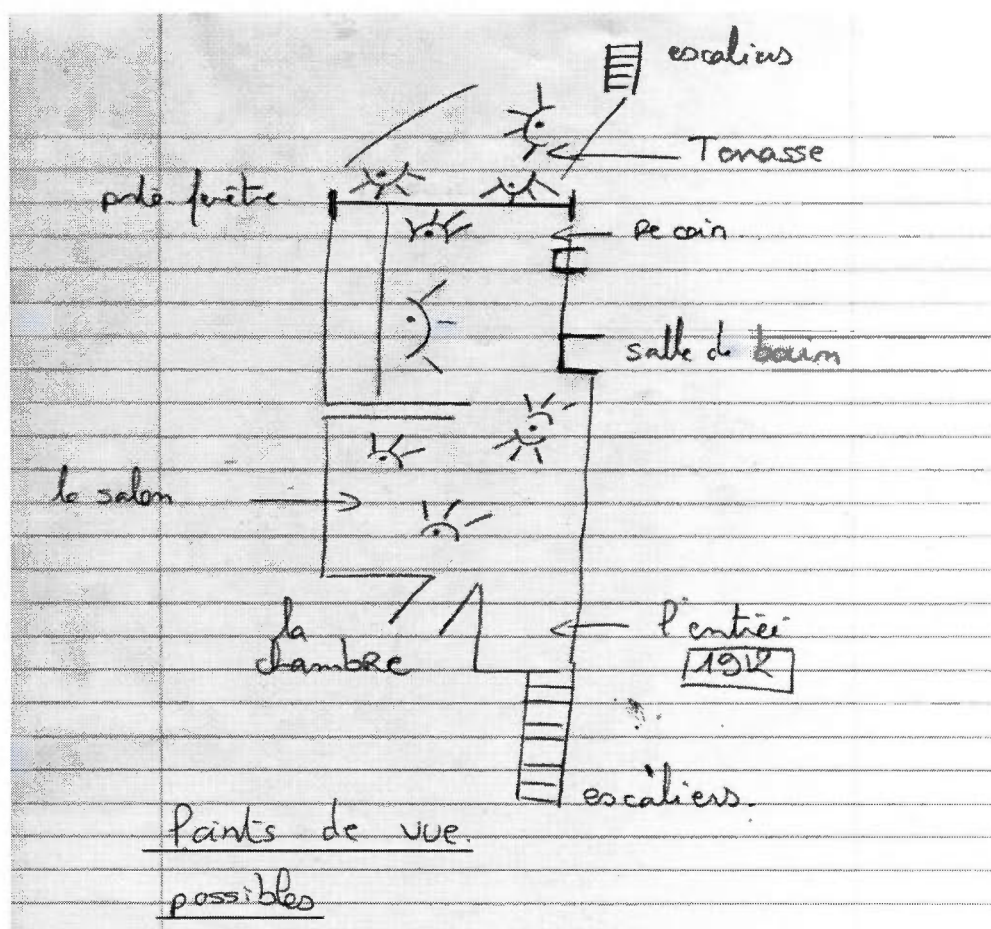 escaliers
Terrasse
porte fenêtre
Recoin
salle de bain
le salon
l'entrée
la
chambRe
19I2
escaliers.
Points de vue.
possibles